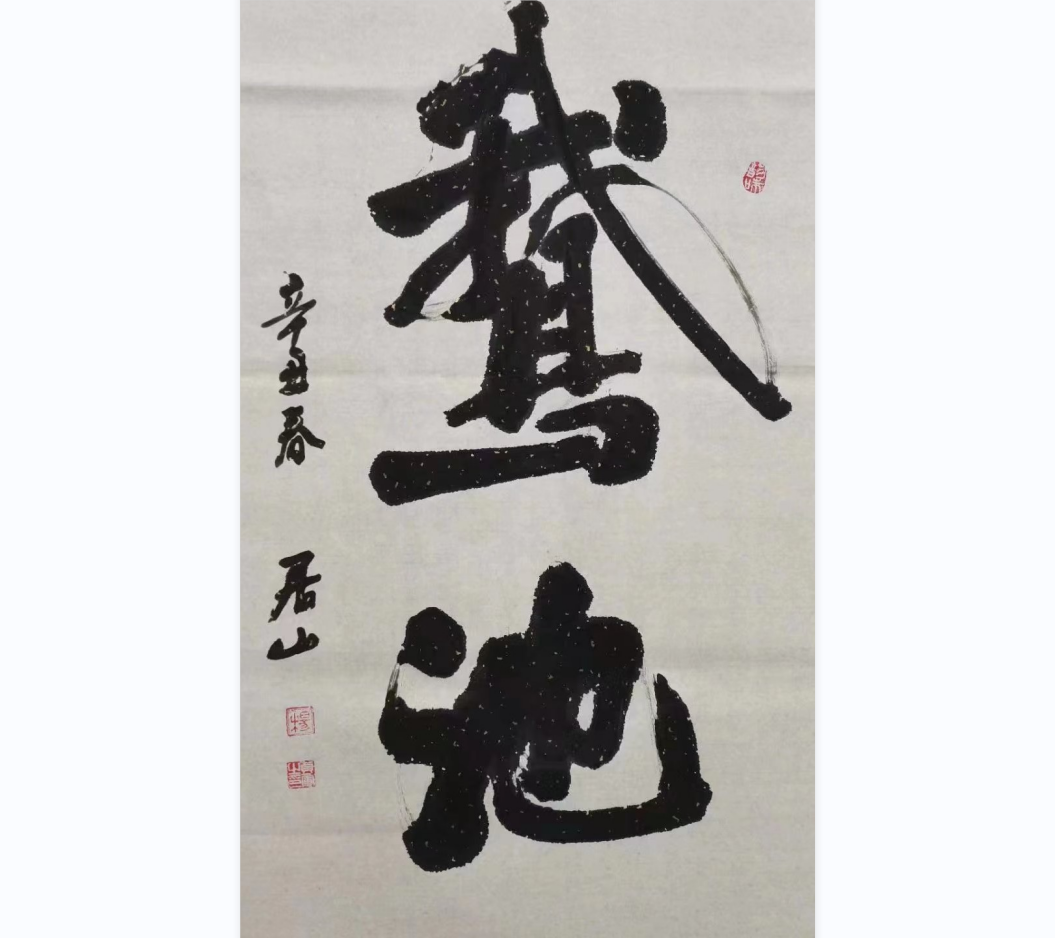 鵞池
辛丑春
居山